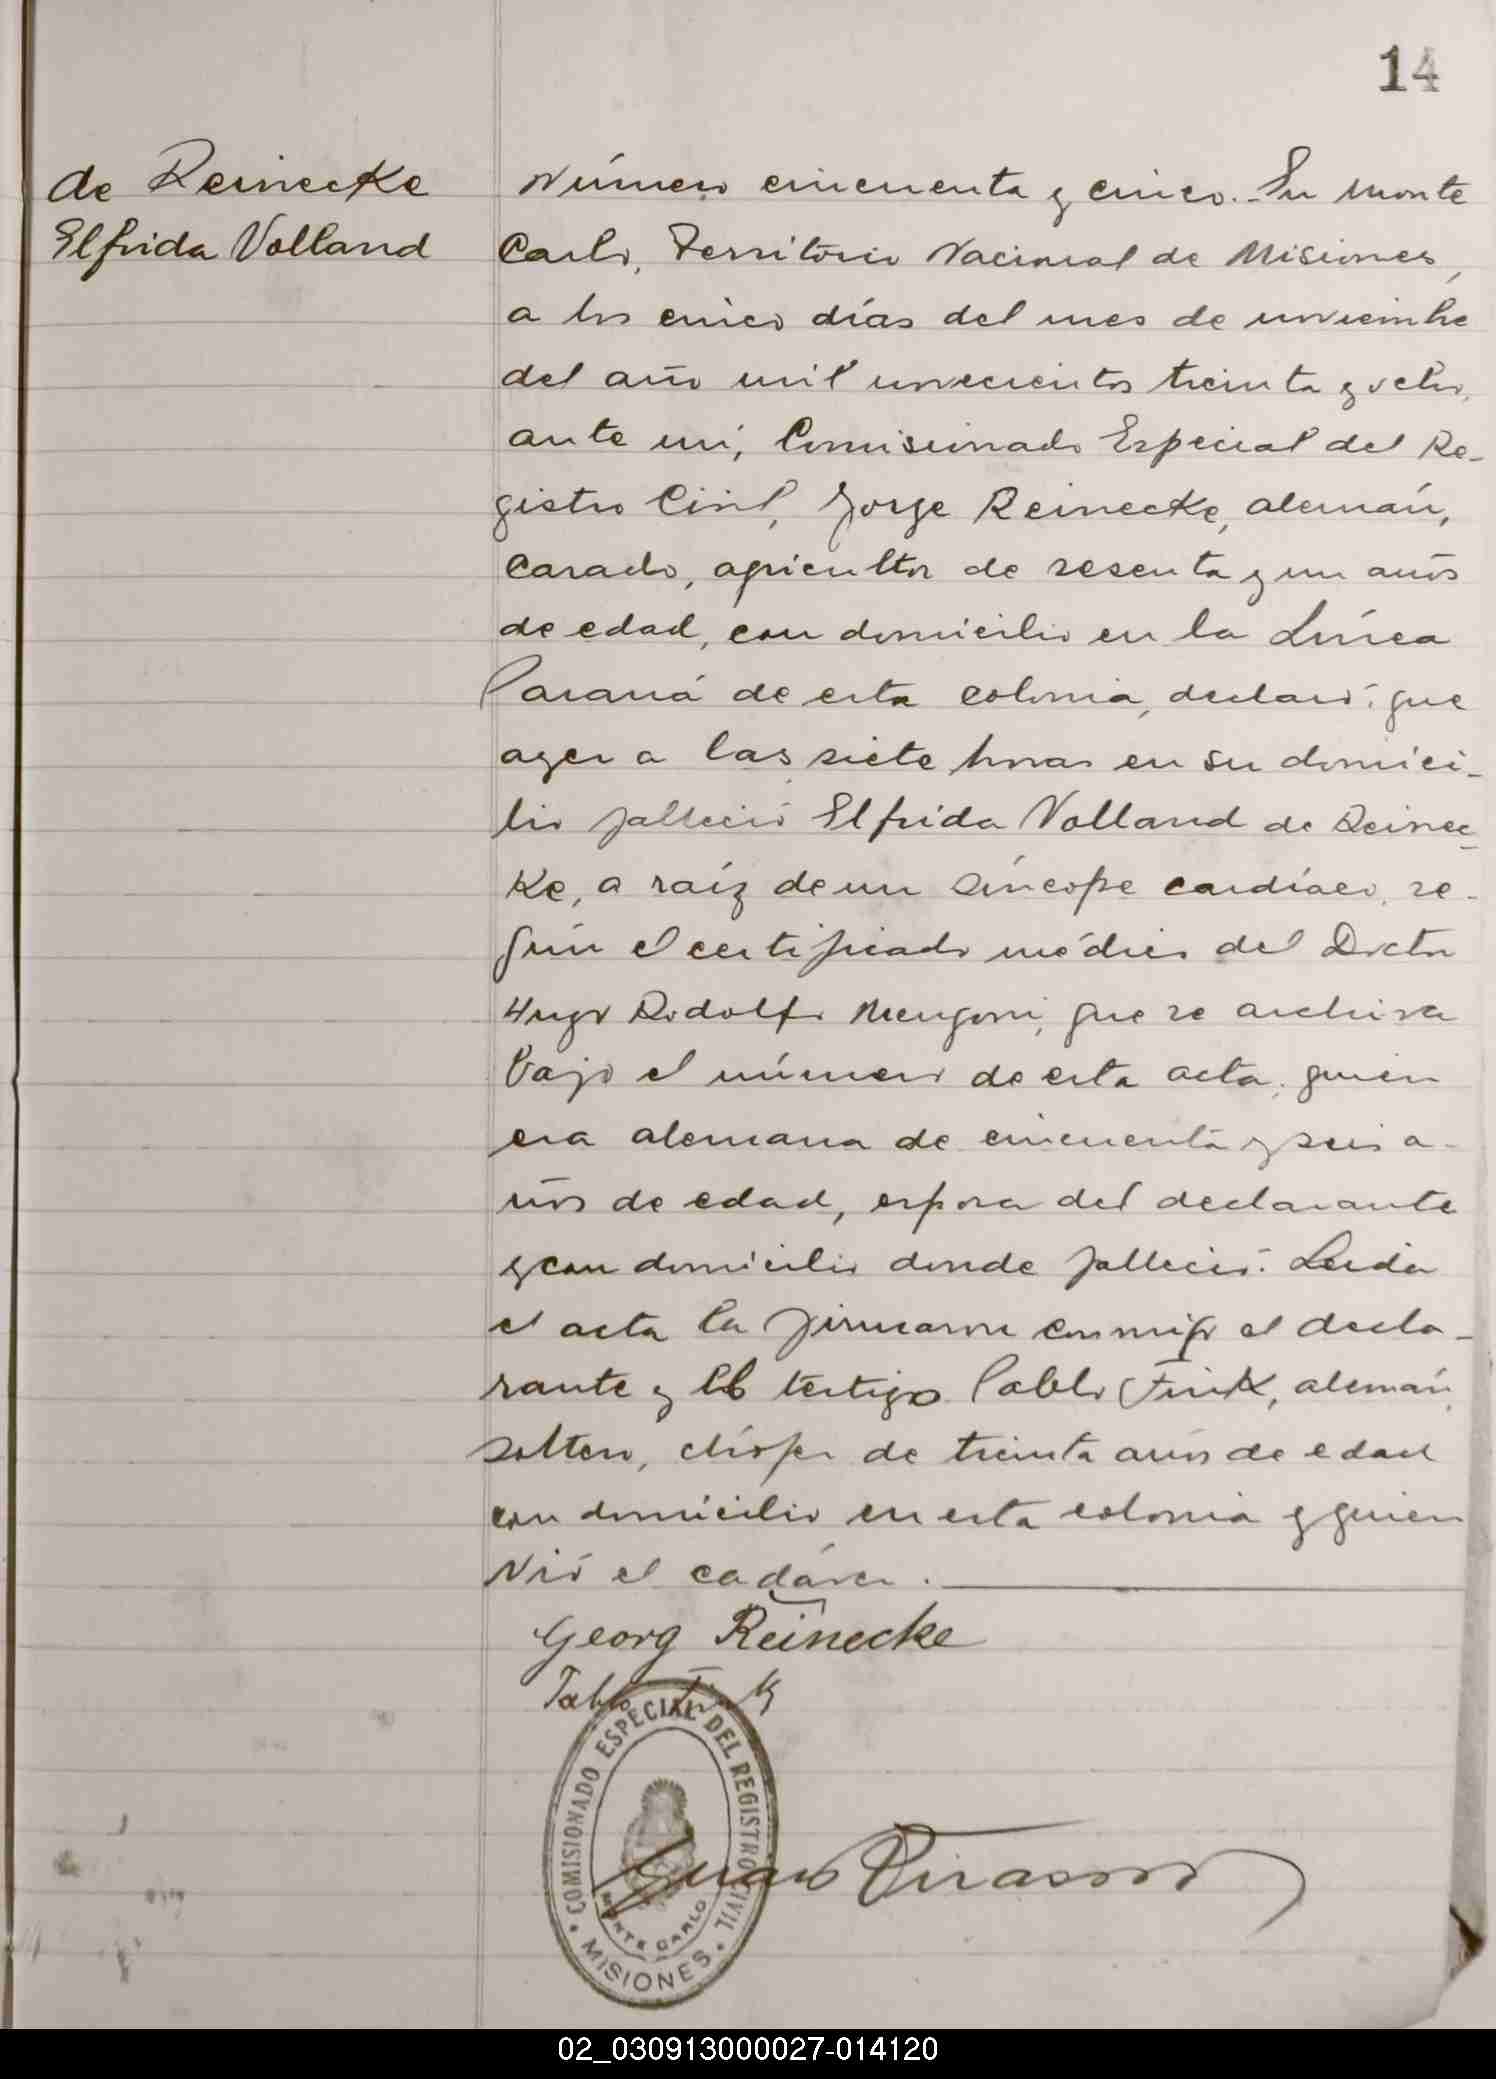 14
de Reinecke
Elfrida Volland
Número cincuenta y cinco.- En Monte
Carlo, Territorio Nacional de Misiones,
a los cinco días del mes de noviembre
del año mil novecientos treinta y ocho,
ante mí, Comisionado Especial del Re-
gistro Civil, Jorge Reinecke, alemán,
casado, agricultor de sesenta y un años
de edad, con domicilio en la Línea
Paraná de esta colonia, declaró: que
ayer a las siete horas en su domici-
lio falleció Elfrida Volland de Reinec-
ke, a raíz de un síncope cardíaco, se-
gún el certificado médico del Doctor
Hugo Rodolfo Mengoni, que se archiva
bajo el número de esta acta; quien
era alemana de cincuenta y seis a-
ños de edad, esposa del declarante
y con domicilio donde falleció. Leída
el acta la firmaron conmigo el decla-
rante y el testigo Pablo Fink, alemán,
soltero, chofer de treinta años de edad
con domicilio en esta colonia y quien
vió el cadáver.
Georg Reinecke
Pablo Fink
COMISIONADO ESPECIAL DEL REGISTRO CIVIL
MONTE CARLO
MISIONES
02_030913000027-014120